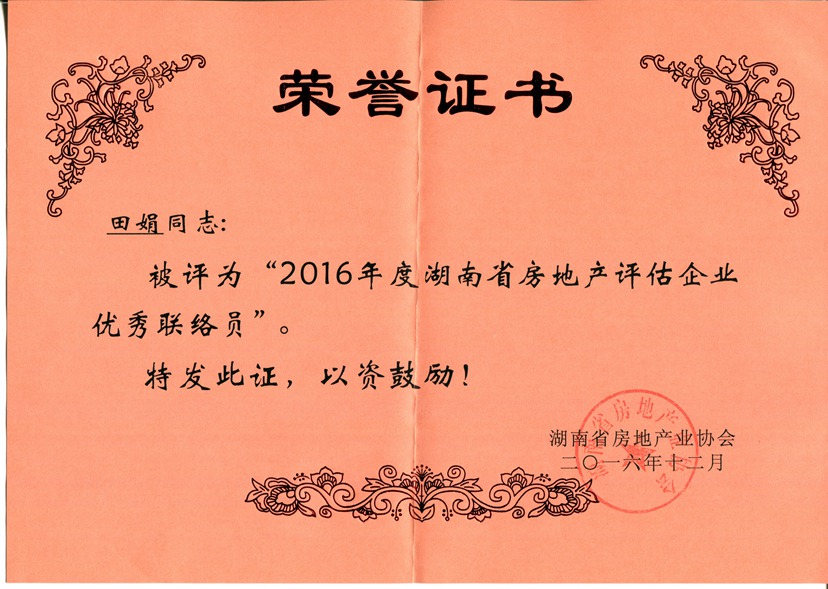 荣誉证书
田娟同志:
被评为“2016年度湖南省房地产评估企业
优秀联络员”。
特发此证，以资鼓励！
湖南省房地产业协会
二〇一六年十二月